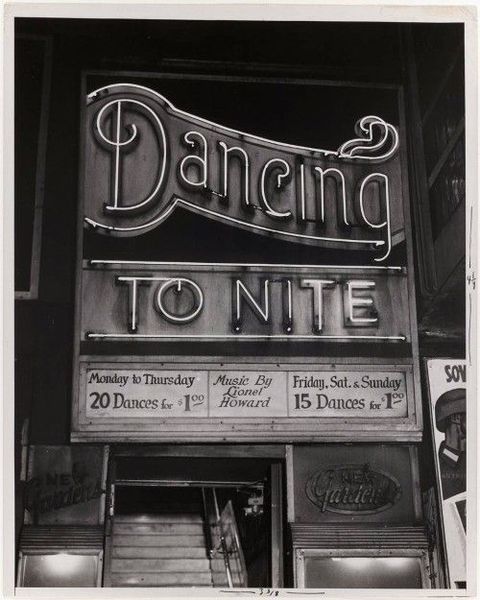 Dancing
TO NITE
Monday to Thursday
20 Dances for $1.00
Music By
Lionel
Howard
Friday, Sat. & Sunday
15 Dances for $1.00
NEW
Gardens
NEW
Gardens
SOV